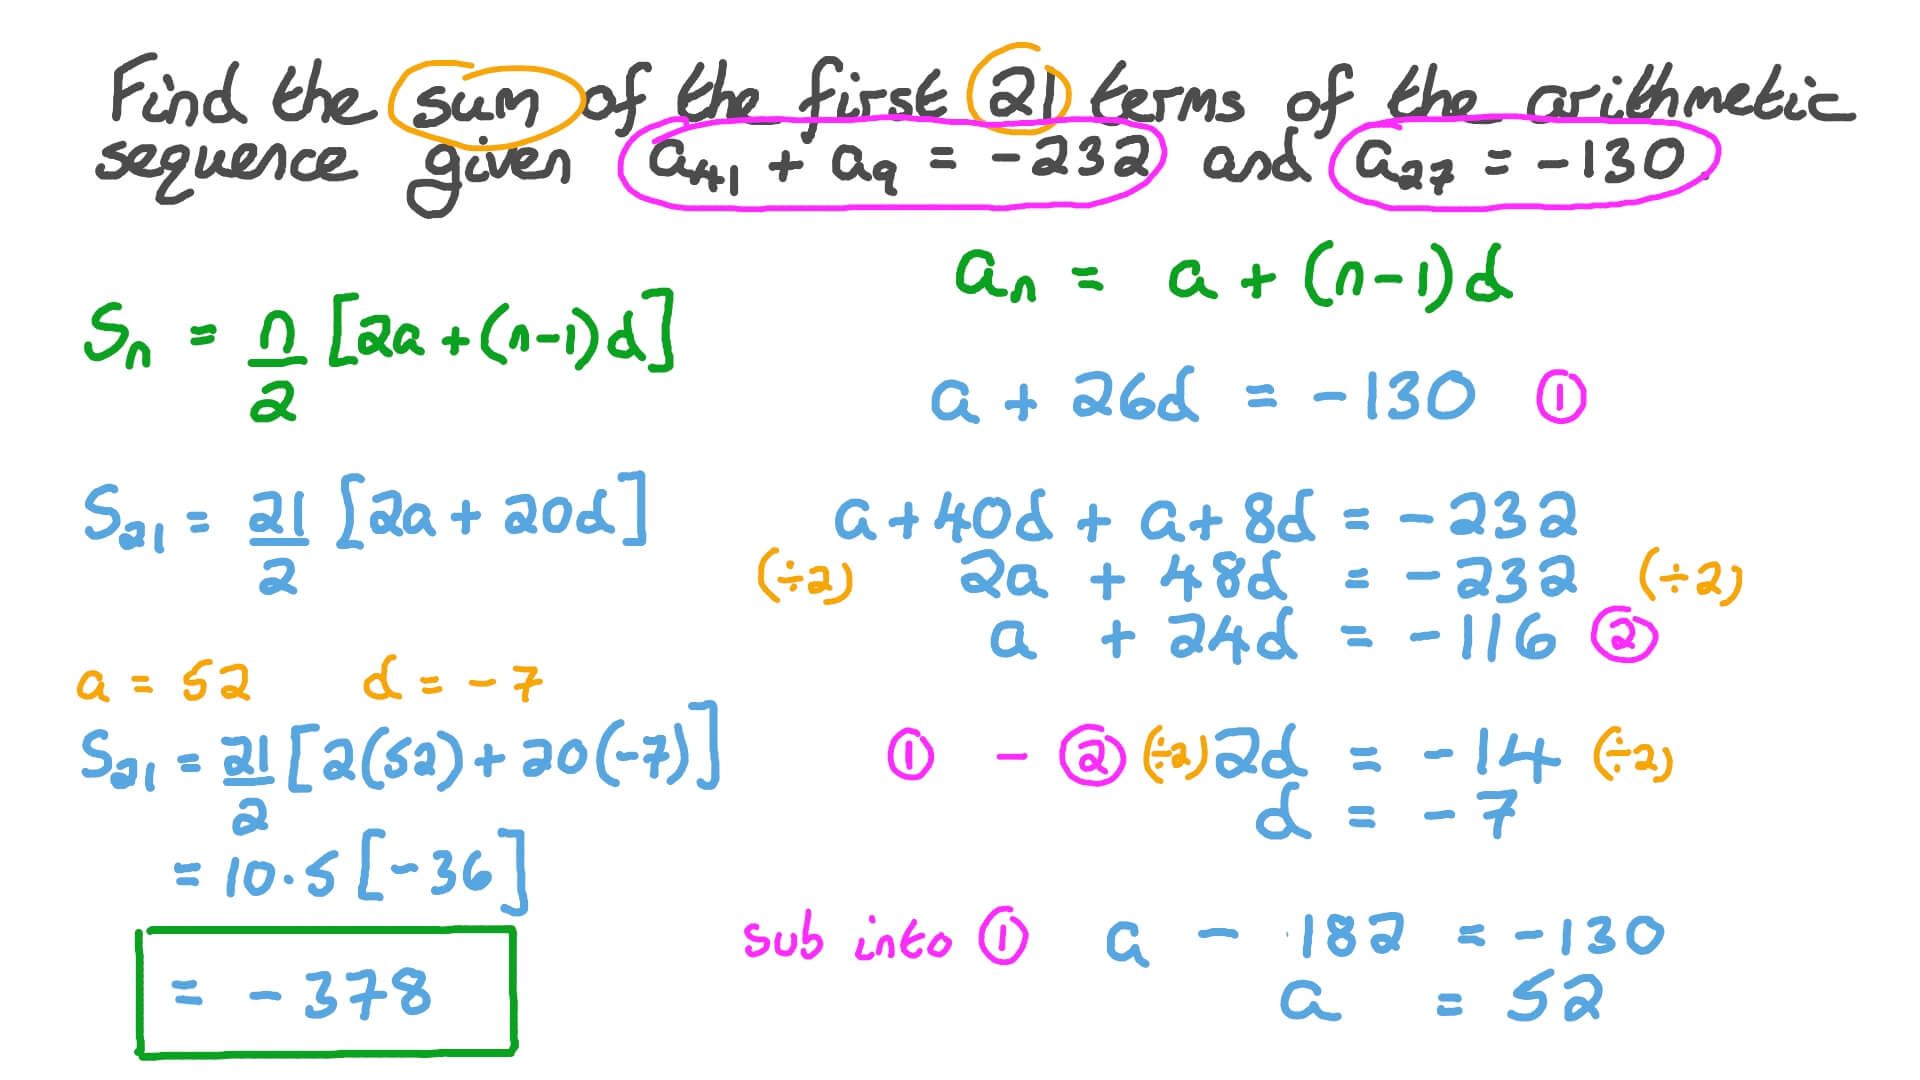 Find the sum of the first 21 terms of the arithmetic
sequence given a₄₁ + a₉ = -232 and a₂₇ = -130.
Sₙ = n/2 [2a + (n-1)d]
S₂₁ = 21/2 [2a + 20d]
a = 52 d = -7
S₂₁ = 21/2 [2(52) + 20(-7)]
= 10.5 [-36]
= -378
aₙ = a + (n-1)d
a + 26d = -130 ①
a + 40d + a + 8d = -232
(÷2) 2a + 48d = -232 (÷2)
a + 24d = -116 ②
① - ② (÷2) 2d = -14 (÷2)
d = -7
sub into ① a - 182 = -130
a = 52